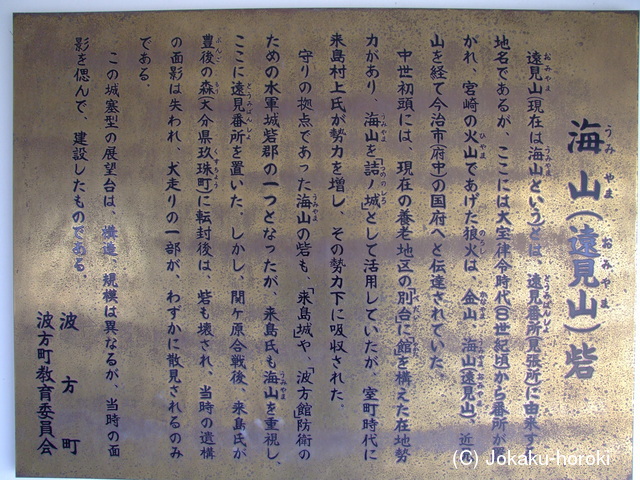 海山(遠見山)砦
うみ やま おみやま
遠見山(現在は海山という)とは、遠見番所(見張所)に由来す
地名であるが、ここには大宝律令時代(八世紀頃)から番所が
かれ、宮崎の火山であげた狼火は、金山、海山(遠見山)、近
山を経て今治市(府中)の国府へと伝達されていた。
中世初頭には、現在の養老地区の「別台」に「館」を構えた在地勢
力があり、海山を「詰ノ城」として活用していたが、室町時代に
来島村上氏が勢力を増し、その勢力下に吸収された。
守りの拠点であった海山の砦も、「来島城」や、「波方」館防衛の
ための水軍城砦郡の一つとなったが、来島氏も海山を重視し、
ここに遠見番所を置いた。しかし、関ヶ原合戦後、来島氏が
豊後の森(大分県玖珠町)に転封後は、砦も壊され、当時の遺構
の面影は失われ、犬走りの一部が、わずかに散見されるのみ
である。
この城塞型の展望台は、構造、規模は異なるが、当時の面
影を偲んで、建設したものである。
波方町
波方町教育委員会
(C) Jokaku-horoki